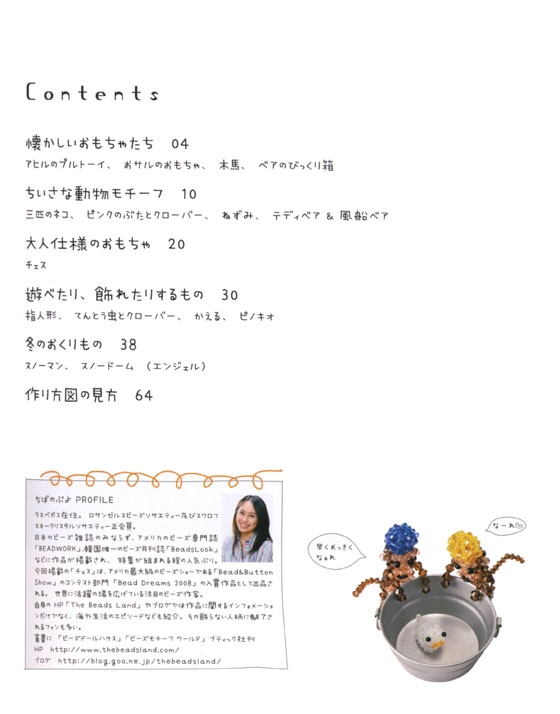 Contents
懐かしいおもちゃたち 04
アヒルのプルトーイ、 おサルのおもちゃ、 木馬、 ベアのびっくり箱
ちいさな動物モチーフ 10
三匹のネコ、 ピンクのぶたとクローバー、 ねずみ、 テディベア & 風船ベア
大人仕様のおもちゃ 20
チェス
遊べたり、飾れたりするもの 30
指人形、 てんとう虫とクローバー、 かえる、 ピノキオ
冬のおくりもの 38
スノーマン、 スノードーム (エンジェル)
作り方図の見方 64
ちばのぶよ PROFILE
ラスベガス在住。 ロサンゼルスビーズソサエティー及びスワロフ
スキークリスタルソサエティー正会員。
日本のビーズ雑誌のみならず、アメリカのビーズ専門誌
「BEADWORK」、韓国唯一のビーズ月刊誌「BeadsLook」
などに作品が掲載され、 特集が組まれる程の人気ぶり。
今回掲載の「チェス」は、アメリカ最大級のビーズショーである「Bead&Button
Show」のコンテスト部門「Bead Dreams 2008」の入賞作品として出品さ
れる。 世界に活躍の場を広げている注目のビーズ作家。
自身のHP「The Beads Land」やブログでは作品に関するインフォメーショ
ンだけでなく、海外生活のエピソードなども紹介。その飾らない人柄に魅了さ
れるファンも多い。
著書に 「ビーズドールハウス」「ビーズモチーフ ワールド」 ブティック社刊
HP http://www.thebeadsland.com/
ブログ http://blog.goo.ne.jp/thebeadsland/
早くおっきく
なぁれ
なーれ♡